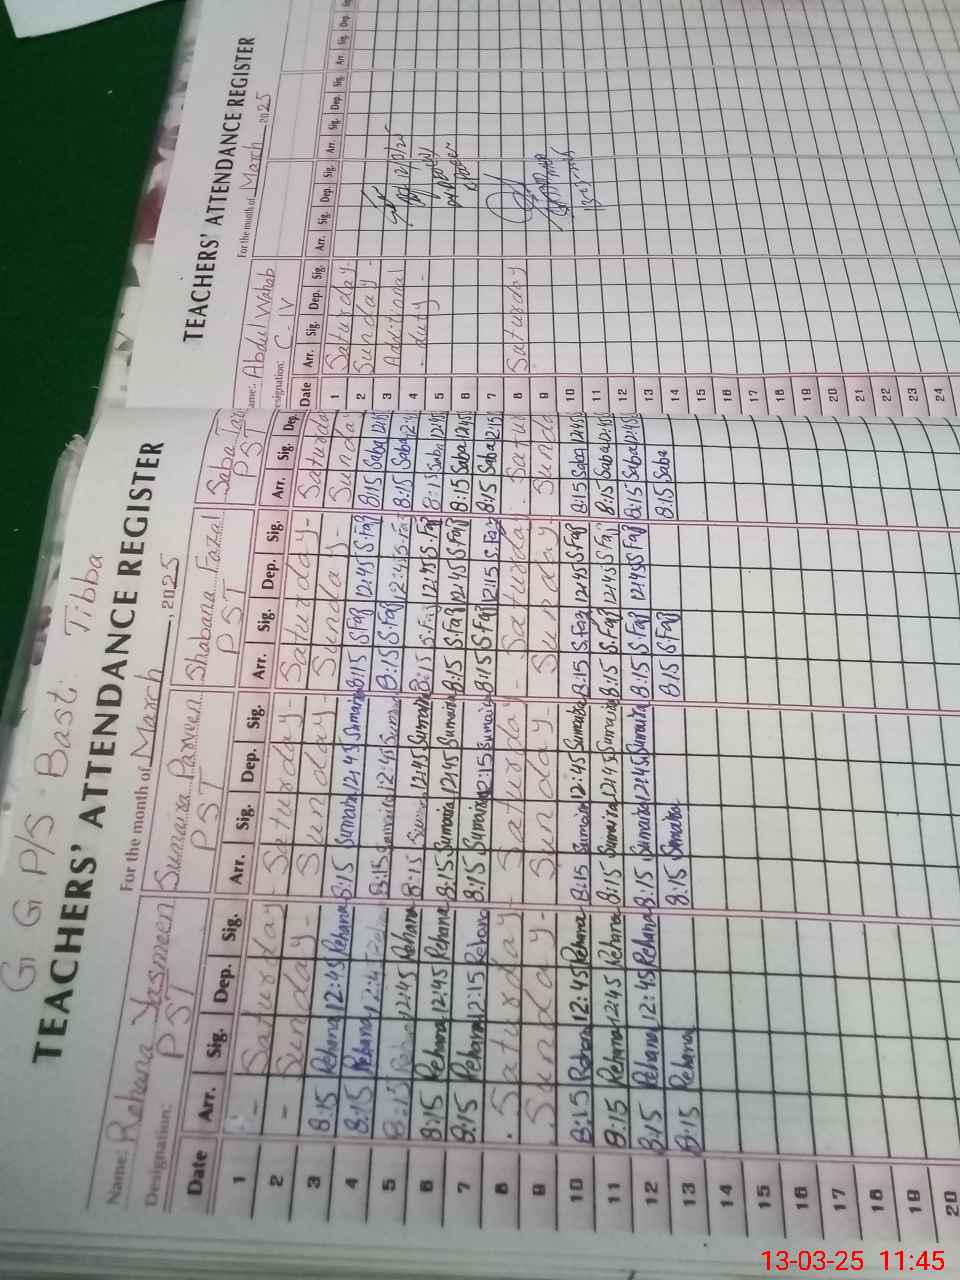 G G P/S Basti Tibba
TEACHERS' ATTENDANCE REGISTER
For the month of March, 2025
Name: Rehana Yasmeen Sumaira Parveen Shabana Fazal Saba
Designation: PST PST PST PST
Date Arr. Sig. Dep. Sig. Arr. Sig. Dep. Sig. Arr. Sig. Dep. Sig. Arr. Sig. Dep.
1 - Saturday - Saturday - Saturday - Saturda
2 - Sunday - Sunday - Sunday - Sunda
3 8:15 Rehana 12:45 Rehana 8:15 Sumaira 12:45 Sumaira 8:15 S.Faz 12:45 S.Faz 8:15 Saba 12:45
4 8:15 Rehana 12:45 Rehana 8:15 Sumaira 12:45 Sumaira 8:15 S.Faz 12:45 S.Faz 8:15 Saba 12:4
5 8:15 Rehana 12:45 Rehana 8:15 Sumaira 12:45 Sumaira 8:15 S.Faz 12:45 S.Faz 8:15 Saba 12:45
6 8:15 Rehana 12:45 Rehana 8:15 Sumaira 12:45 Sumaira 8:15 S.Faz 12:45 S.Faz 8:15 Saba 12:45
7 8:15 Rehana 12:15 Rehana 8:15 Sumaira 12:15 Sumaira 8:15 S.Faz 12:15 S.Faz 8:15 Saba 12:15
8 Saturday - Saturday - Saturday Satur
9 Sunday - Sunday - Sunday Sund
10 8:15 Rehana 12:45 Rehana 8:15 Sumaira 12:45 Sumaira 8:15 S.Faz 12:45 S.Faz 8:15 Saba 12:45
11 8:15 Rehana 12:45 Rehana 8:15 Sumaira 12:45 Sumaira 8:15 S.Faz 12:45 S.Faz 8:15 Saba 12:45
12 8:15 Rehana 12:45 Rehana 8:15 Sumaira 12:45 Sumaira 8:15 S.Faz 12:45 S.Faz 8:15 Saba 12:45
13 8:15 Rehana 8:15 Sumaira 8:15 S.Faz 8:15 Saba
14
15
16
17
18
19
20
TEACHERS' ATTENDANCE REGISTER
For the month of March 2025
ame: Abdul Wahab
esignation: C-IV
Date Arr. Sig. Dep. Sig. Arr. Sig. Dep. Sig. Arr. Sig. Dep. Sig. Arr. Sig. Dep. Sig
1 Saturday -
2 Sunday -
3 Additional
4 - duty -
5
6
7
8 Saturday
9
10
11
12
13
14
15
16
17
18
19
20
21
22
23
24
13-03-25 11:45